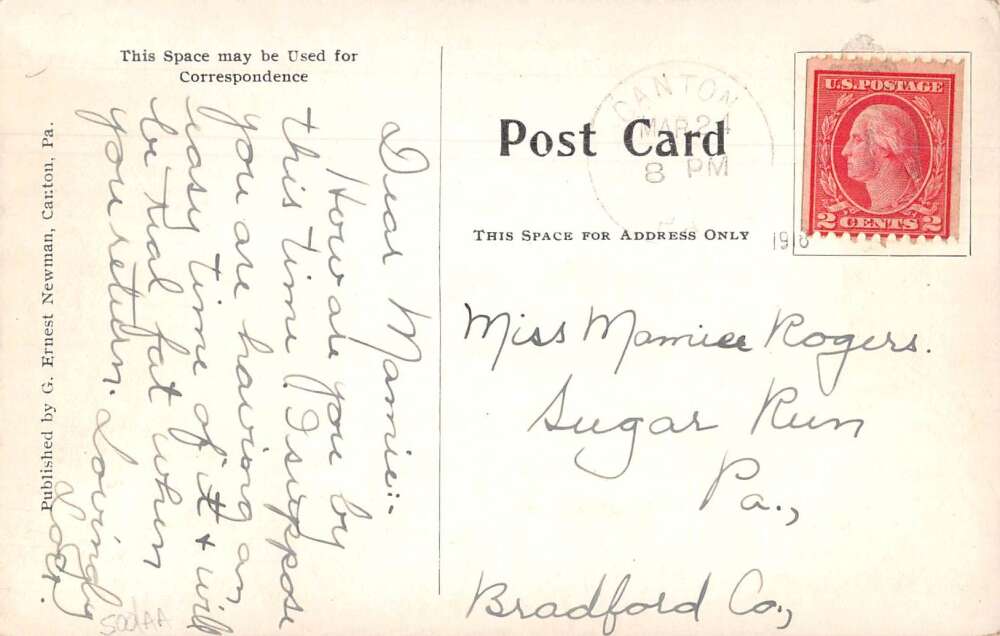 This Space may be Used for
Correspondence
Post Card
CANTON
MAR 24
8 PM
1918
U.S. POSTAGE
2 CENTS 2
THIS SPACE FOR ADDRESS ONLY
Published by G. Ernest Newman, Canton, Pa.
Dear Mamie:-
How are you by
this time. I suppose
you are having an
easy time of it & will
be that fat when
you return. Lovingly
Miss Mamie Rogers.
Sugar Run
Pa.,
Bradford Co.,